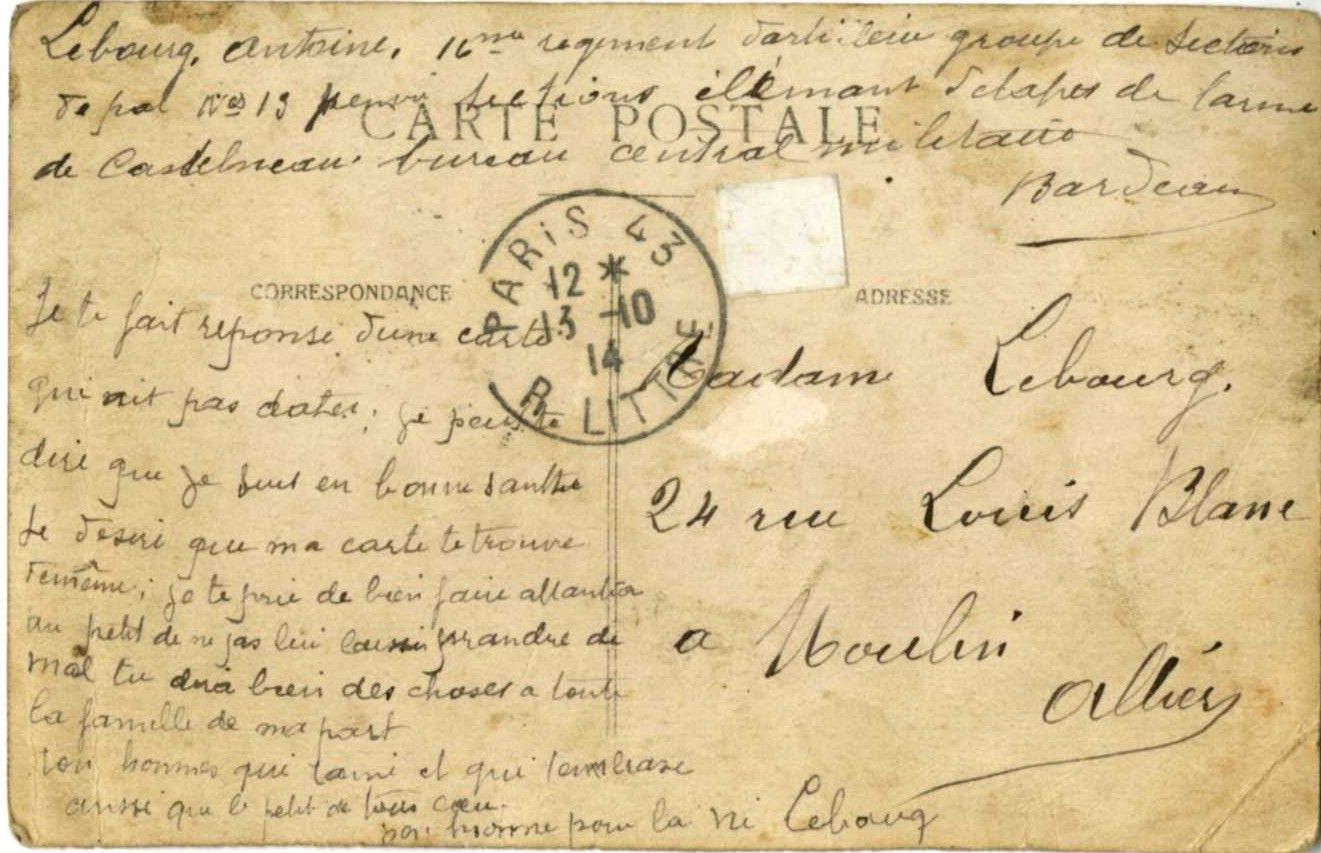 Lebourg, antoine, 16me regiment dartillerie groupe de sections
de pal Nos 13 sections élémant d'etapes de larme
CARTE POSTALE
de Castelneau bureau central militaire
Bardeau
PARIS 43
12 *
13 -10
14
R. LITTRE
CORRESPONDANCE
Je te fait reponse dune carte
qui nit pas dater; je peus te
dire que je suis en bonne santte
Je desire que ma carte te trouve
demême; je te prie de bien faire attantion
au petit de ne pas lui laissir prandre de
mal tu dira bien des choses a toute
la famille de ma part
ton hommes qui taime et qui tembrase
aussi que le petit de tous cœur.
ton homme pour la vi Lebourg
ADRESSE
Madame Lebourg.
24 rue Louis Blanc
a Moulin
Allier